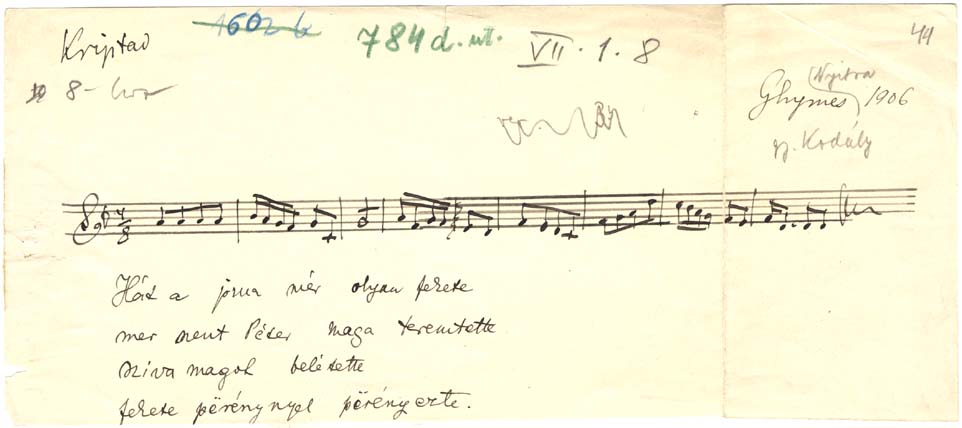 1602 b
784 d. ut.
VII. 1. 8
44
Kriptad
8-
Nyitra
Ghymes 1906
gy. Kodály
4/8
Hát a juha mér olyan fekete
mer szent Péter maga teremtette
sziva magok belétette
fekete përénynyel përényezte.